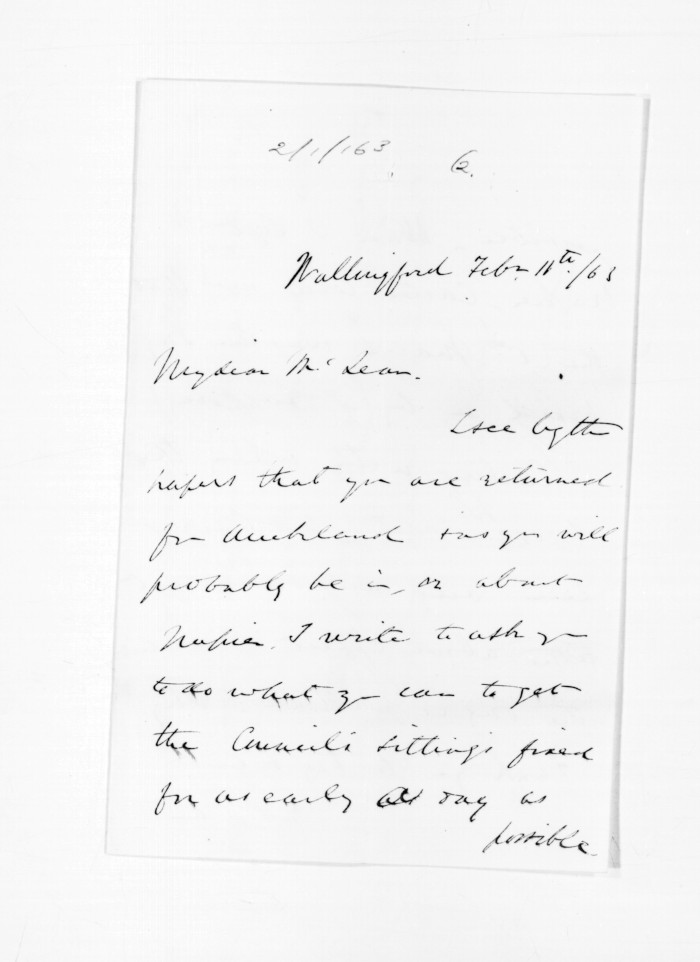 2/1/163 6.
Wallingford Feby 11th/63
My dear McLean.
I see by the
papers that you are returned
from Auckland & as you will
probably be in, or about
Napier, I write to ask you
to do what you can to get
the Council's sittings fixed
for as early a day as
possible